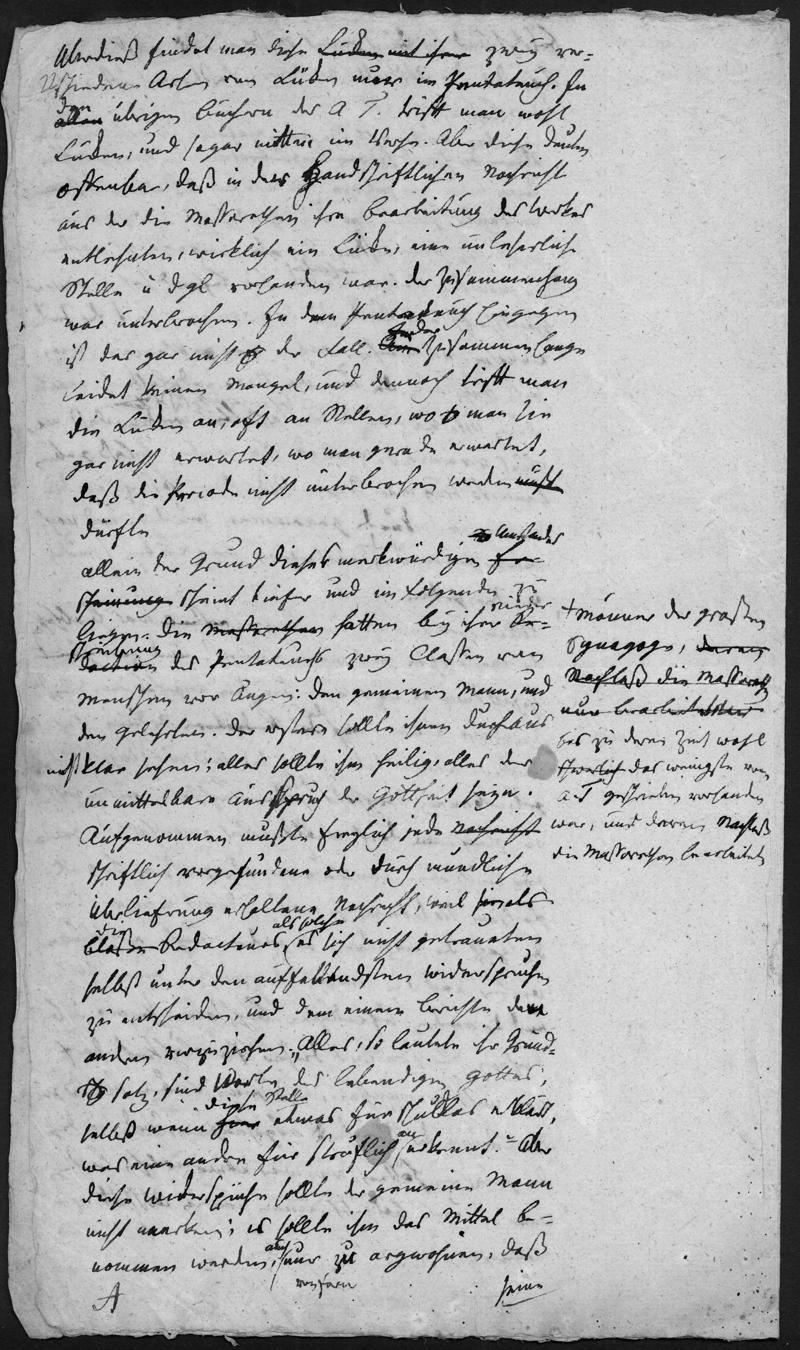 Überdieß findet man diese Lücken mit ihren zwey ver-
schiedene Arten von Lücken nur im Pentateuch. In
den allen übrigen Büchern des A T. trift man wohl
Lücken, und sogar mitten im Verse. Aber diese deuten
offenbar, daß in der Handschriftlichen Nachricht
aus der die Massorethen ihre Bearbeitung des Werkes
entlehnten, wirklich ein Lücke, eine unleserliche
Stelle u dgl vorhanden war. der Zusammenhang
war unterbrochen. In dem Pentateuch hingegen
ist das gar nicht der Fall. der Zusammenhang
leidet keinen Mangel, und dennoch trift man
die Lücken an, oft an Stellen, wo man sie
gar nicht erwartet, wo man gerade erwartet,
daß die Periode nicht unterbrochen werden
dürfte
allein der Grund dieses merkwürdigen Umstandes Er-
scheinung scheint tiefer und im folgenden zu
liegen. Die Massorethen hatten bey ihrer einiger Re-
daction des Pentateuchs zwey Classen von
Menschen vor Augen: den gemeinen Mann, und
den gelehrten. der erstere sollte ihnen durchaus
nicht klar sehen; alles sollte ihm heilig, alles der
unmittelbare Ausspruch der Gottheit seyn.
Aufgenommen mußte freylich jede Nachricht
schriftlich vorgefundene oder durch mündliche
Überlieferung erhaltene Nachricht, weil
die bloße Redacteurs, als solche es sich nicht getrauten
selbst unter den auffallendsten Widersprüchen
zu entscheiden, und dem einen Berichte den
andern vorzuziehen. „Alles, so lautete ihr Grund-
satz, sind Worte des lebendigen Gottes,
selbst wenn diese Stelle etwas für schuldlos erklärt,
was eine andere für sträflich anerkennt.“ Aber
diese Widersprüche sollte der gemeine Mann
nicht merken; es sollte ihm das Mittel be-
nommen werden, auch nur von fern zu argwohnen, daß
seine
A
+ Männer der großen
Synagoge, deren
Nachlaß die Massoreth
nur bearbeiteten
bis zu deren Zeit wohl
das wenigste vom
A. T geschrieben vorhanden
war, und deren Nachlaß
die Massorethen bearbeiteten